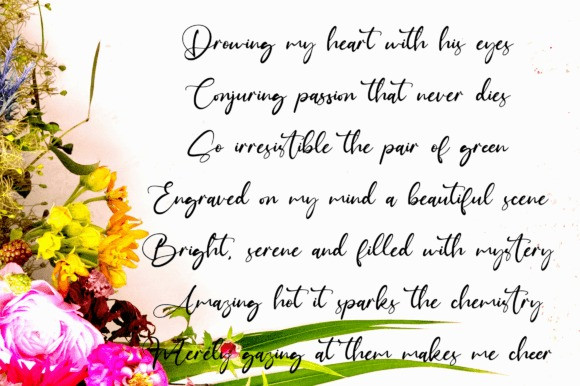 Drowing my heart with his eyes
Conjuring passion that never dies
So irresistible the pair of green
Engraved on my mind a beautiful scene
Bright, serene and filled with mystery
Amazing hot it sparks the chemistry
Merely gazing at them makes me cheer